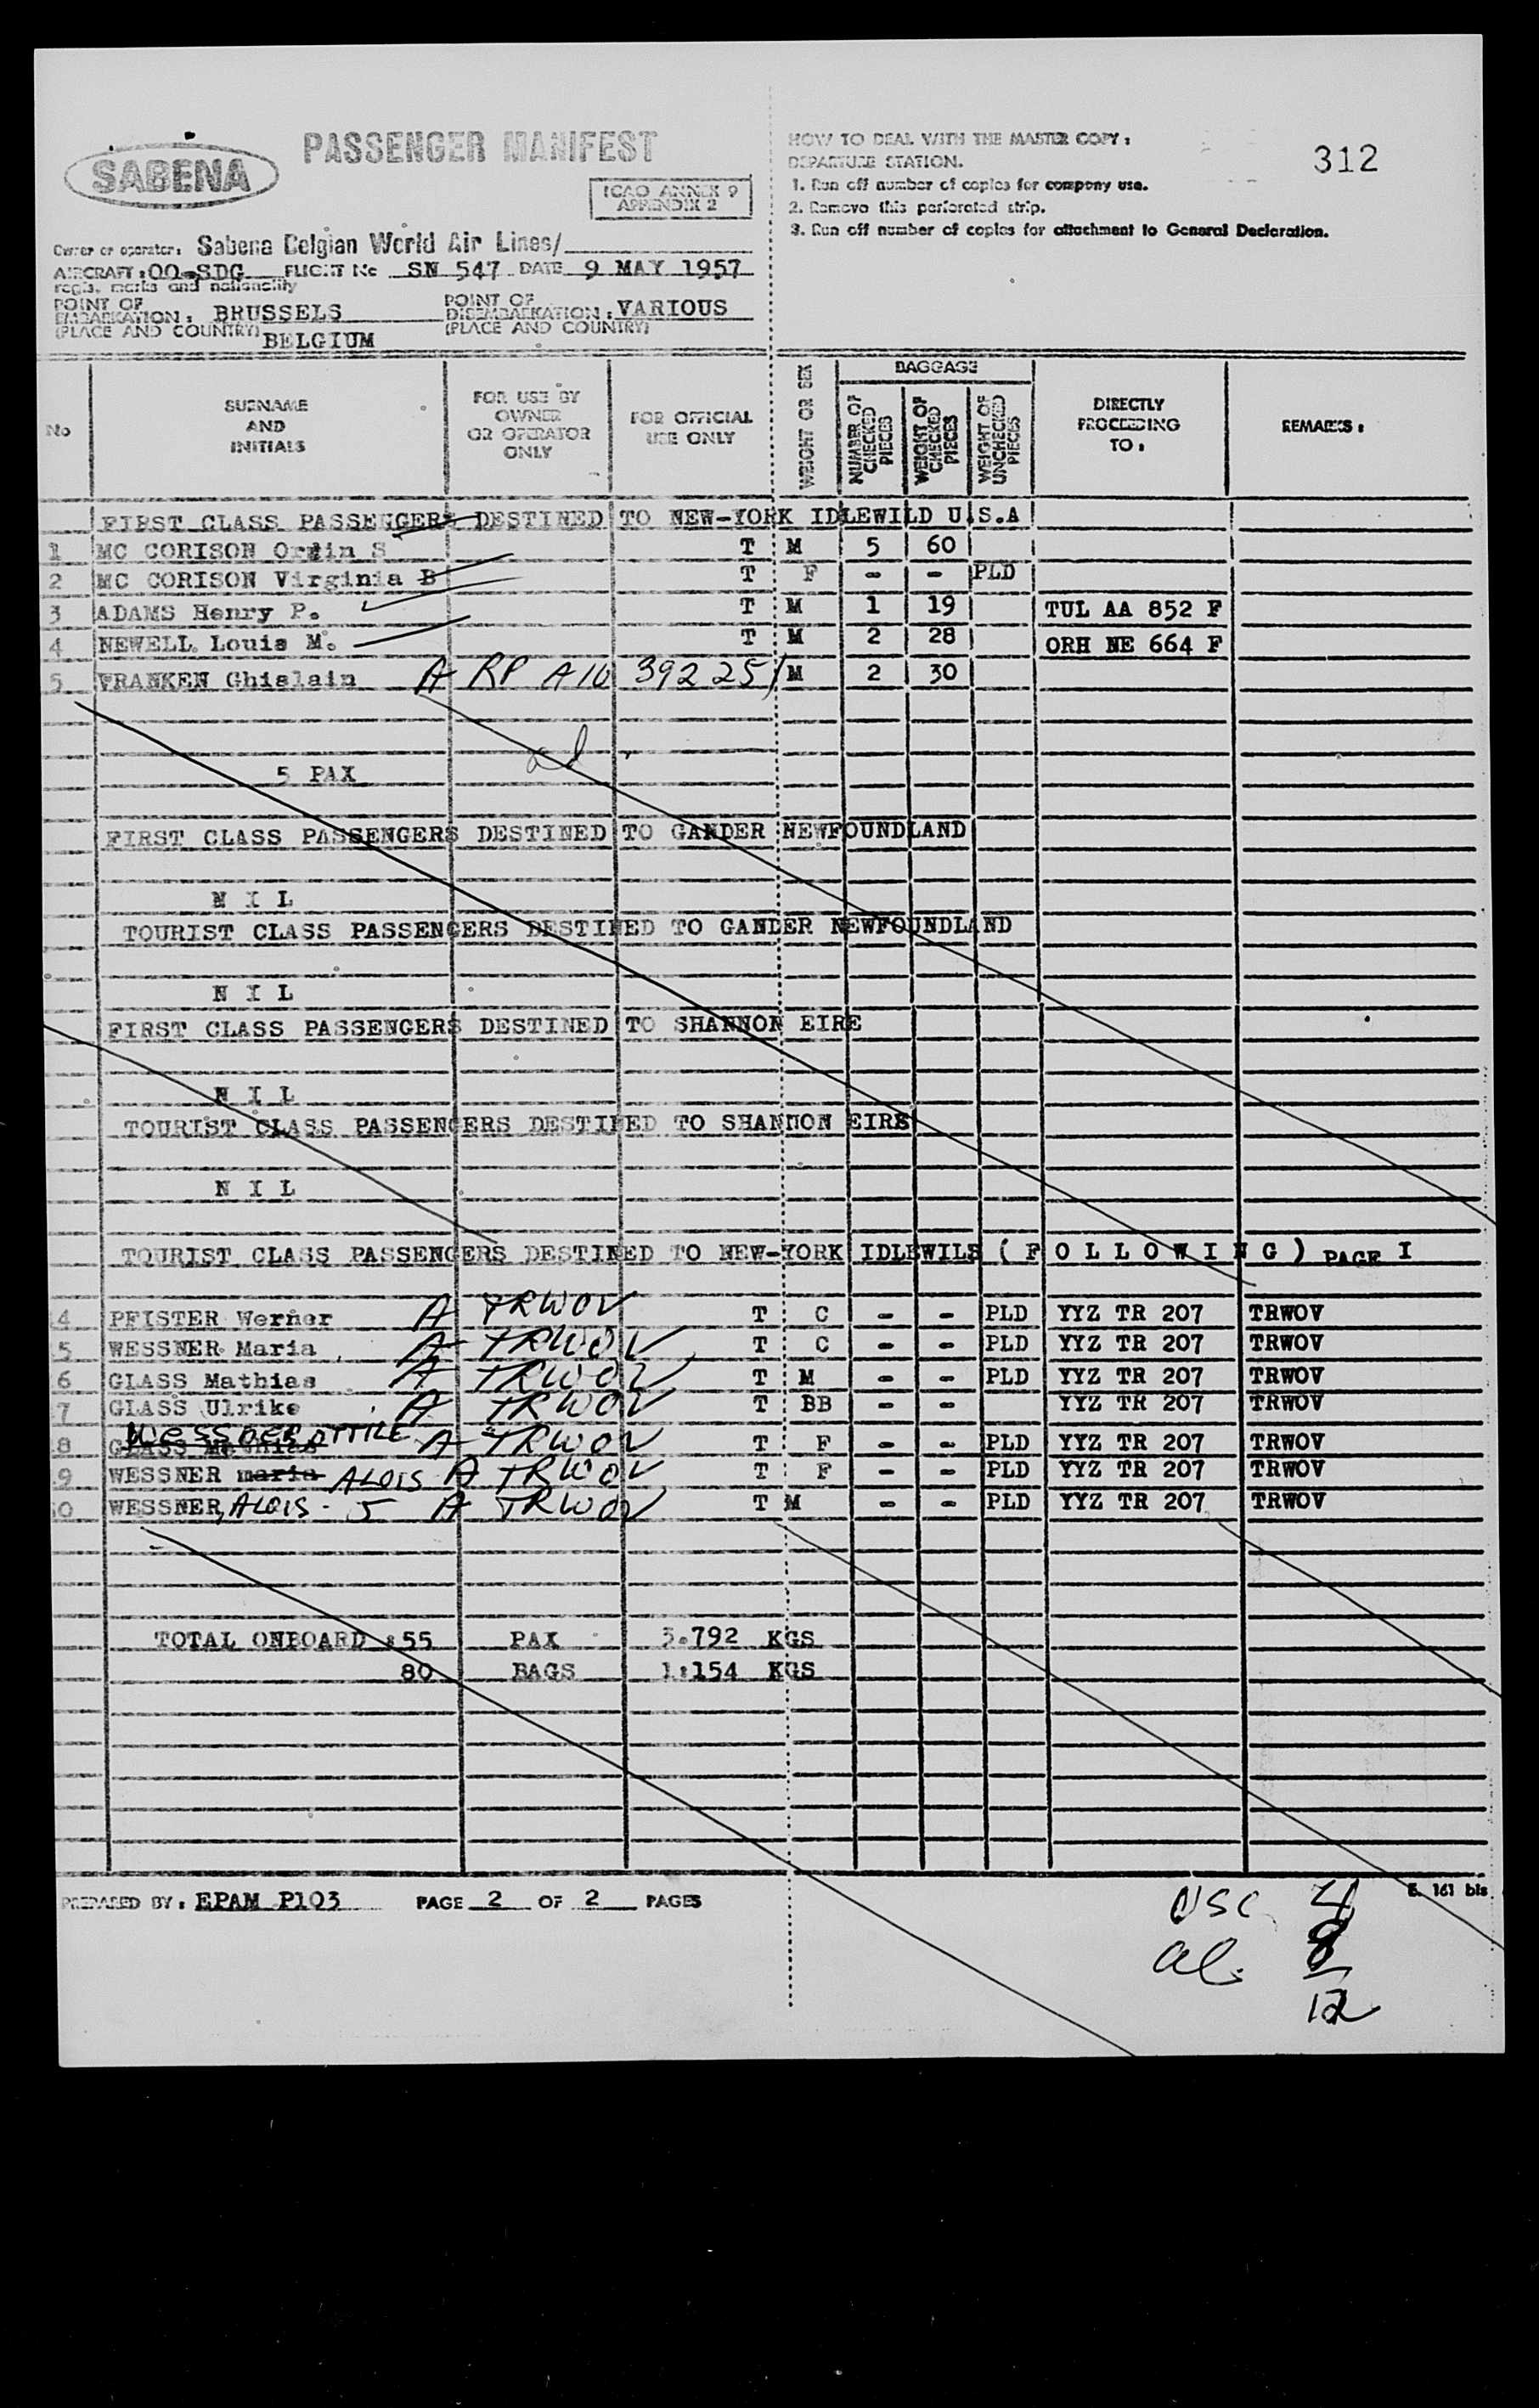 PASSENGER MANIFEST
SABENA
ICAO ANNEX 9
APPENDIX 2
HOW TO DEAL WITH THE MASTER COPY :
DEPARTURE STATION.
1. Run off number of copies for company use.
2. Remove this perforated strip.
3. Run off number of copies for attachment to General Declaration.
312
Owner or operator: Sabena Belgian World Air Lines/
AIRCRAFT : OO-SDG FLIGHT No SN 547 DATE 9 MAY 1957
regis. marks and nationality
POINT OF EMBARKATION : BRUSSELS POINT OF DISEMBARKATION : VARIOUS
(PLACE AND COUNTRY) BELGIUM (PLACE AND COUNTRY)
No SURNAME AND INITIALS FOR USE BY OWNER OR OPERATOR ONLY FOR OFFICIAL USE ONLY WEIGHT OR SEX BAGGAGE NUMBER OF CHECKED PIECES WEIGHT OF CHECKED PIECES WEIGHT OF UNCHECKED PIECES DIRECTLY PROCEEDING TO : REMARKS :
FIRST CLASS PASSENGERS DESTINED TO NEW-YORK IDLEWILD U.S.A
1 MC CORISON Ordin S T M 5 60
2 MC CORISON Virginia B T F - - PLD
3 ADAMS Henry P. T M 1 19 TUL AA 852 F
4 NEWELL Louis M. T M 2 28 ORH NE 664 F
5 VRANKEN Ghislain A RP A10 392 251 M 2 30
5 PAX
FIRST CLASS PASSENGERS DESTINED TO GANDER NEWFOUNDLAND
N I L
TOURIST CLASS PASSENGERS DESTINED TO GANDER NEWFOUNDLAND
N I L
FIRST CLASS PASSENGERS DESTINED TO SHANNON EIRE
N I L
TOURIST CLASS PASSENGERS DESTINED TO SHANNON EIRE
N I L
TOURIST CLASS PASSENGERS DESTINED TO NEW-YORK IDLEWILS ( F O L L O W I N G ) PAGE I
4 PFISTER Werner A TRWOV T C - - PLD YYZ TR 207 TRWOV
5 WESSNER Maria A TRWOV T C - - PLD YYZ TR 207 TRWOV
6 GLASS Mathias A TRWOV T M - - PLD YYZ TR 207 TRWOV
7 GLASS Ulrike A TRWOV T BB YYZ TR 207 TRWOV
WESSNER OTTILE
8 GLASS Mathias A TRWOV T F - - PLD YYZ TR 207 TRWOV
9 WESSNER maria ALOIS A TRWOV T F - - PLD YYZ TR 207 TRWOV
0 WESSNER, ALOIS - J A TRWOV T M - - PLD YYZ TR 207 TRWOV
TOTAL ONBOARD : 55 PAX 3.792 KGS
80 BAGS 1:154 KGS
PREPARED BY : EPAM P103 PAGE 2 OF 2 PAGES
E. 161 bis
USC 4
al. 8
12